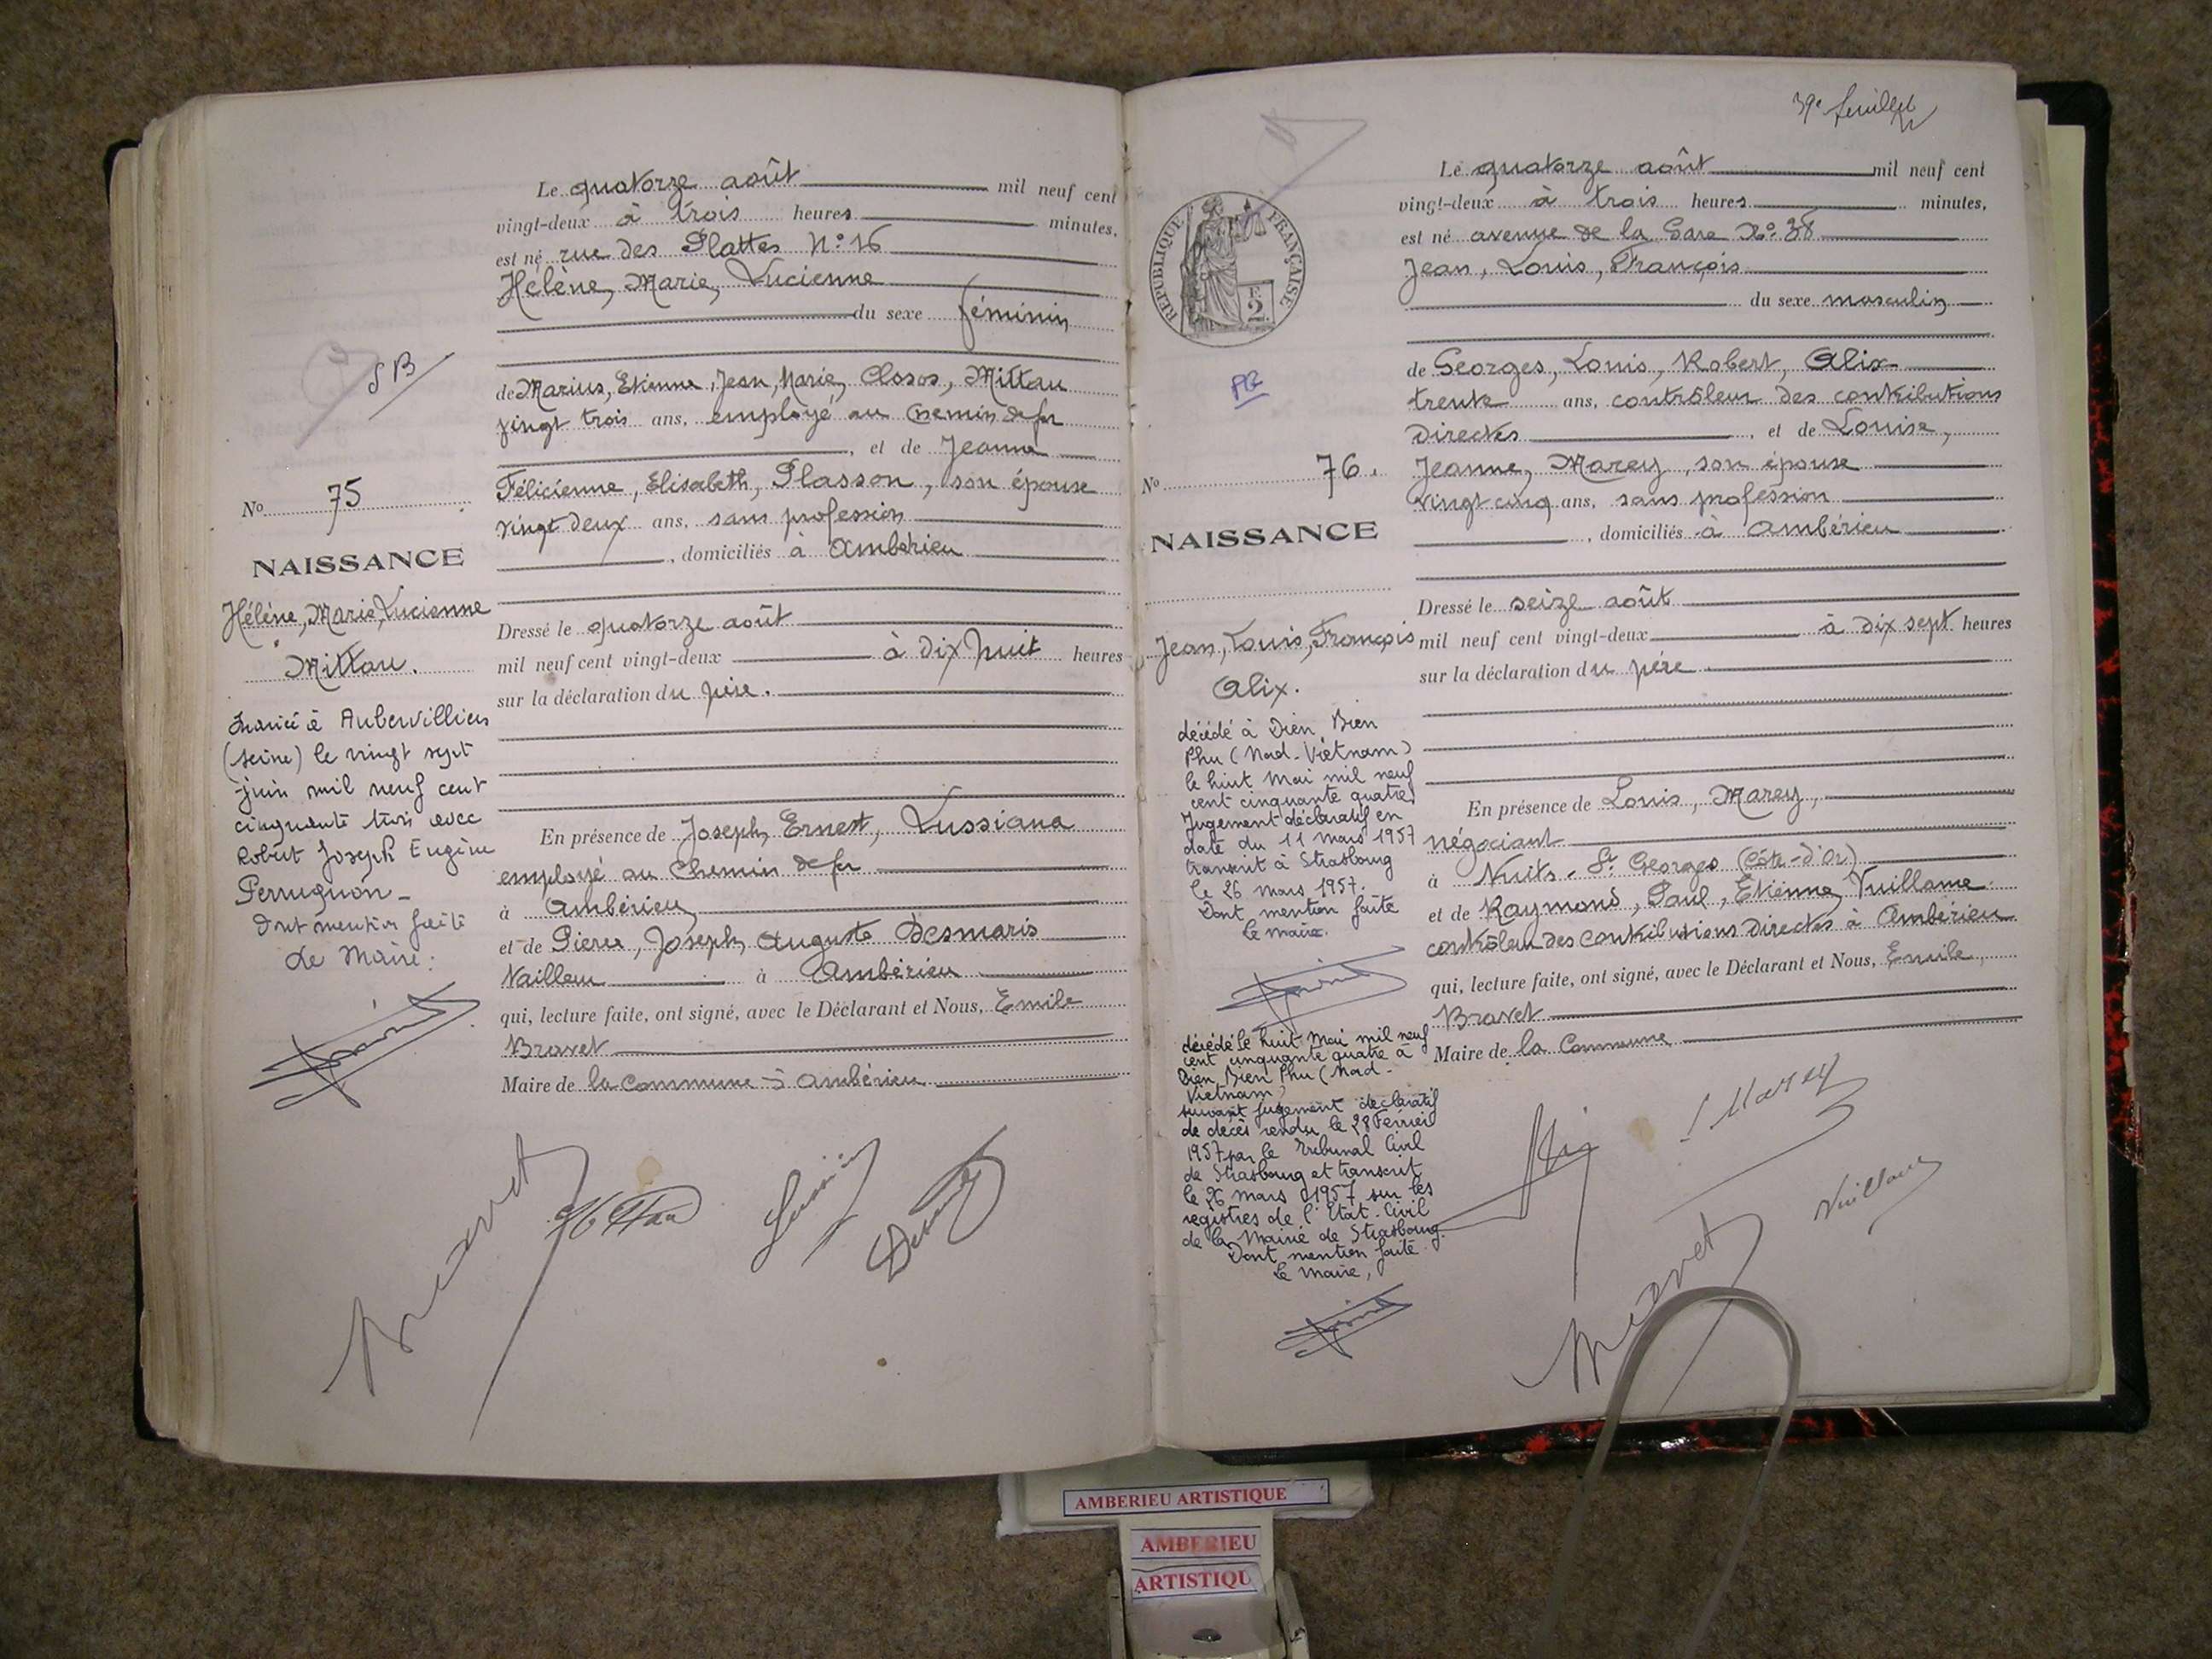 Le quatorze août mil neuf cent
vingt-deux à trois heures minutes,
est né rue des Plattes N° 16
Hélène, Marie, Lucienne
du sexe féminin
de Marius, Etienne, Jean, Marie, Mittau
vingt trois ans, employé au chemin de fer
, et de Jeanne
Félicienne, Elisabeth, Plasson, son épouse
vingt deux ans, sans profession
, domiciliés à Ambérieu
Dressé le quatorze août
mil neuf cent vingt-deux à dix huit heures
sur la déclaration du père.
En présence de Joseph, Ernest, Lussiana
employé au Chemin de fer
à Ambérieu
et de Pierre, Joseph, Auguste Desmaris
à Ambérieu
qui, lecture faite, ont signé, avec le Déclarant et Nous, Emile
Bravet
Maire de la Commune à Ambérieu
SB
No 75
NAISSANCE
Hélène, Marie, Lucienne
Mittau.
Marié à Aubervilliers
(Seine) le vingt sept
juin mil neuf cent
cinquante trois avec
Robert Joseph Eugène
Perrugnon
Dont mention faite
Le Maire:
Bravet
Mittau
39e feuillet
Le quatorze août mil neuf cent
vingt-deux à trois heures minutes,
est né avenue de la Gare N° 38
Jean, Louis, François
du sexe masculin
de Georges, Louis, Robert, Alix
trente ans, contrôleur des contributions
Directes , et de Louise,
Jeanne, Marey, son épouse
vingt cinq ans, sans profession
, domiciliés à Ambérieu
Dressé le seize août
mil neuf cent vingt-deux à dix sept heures
sur la déclaration du père
En présence de Louis, Marey,
négociant
à Nuits-St Georges (Côte-d'Or)
et de Raymond, Paul, Etienne, Vuillame
contrôleur des contributions Directes à Ambérieu
qui, lecture faite, ont signé, avec le Déclarant et Nous, Emile,
Bravet
Maire de la Commune
REPUBLIQUE FRANÇAISE
F. 2
No 76.
NAISSANCE
Jean, Louis, François
Alix.
décédé à Dien Bien
Phu (Nord-Vietnam)
le huit Mai mil neuf
cent cinquante quatre
Jugement déclaratif en
date du 11 mars 1957
transcrit à Strasbourg
le 26 mars 1957.
Dont mention faite
Le Maire.
décédé le huit Mai mil neuf
cent cinquante quatre à
Dien Bien Phu (Nord-
Vietnam)
suivant jugement déclaratif
de décès rendu le 28 Février
1957 par le Tribunal Civil
de Strasbourg et transcrit
le 26 mars 1957 sur les
registres de l'Etat-Civil
de la Mairie de Strasbourg.
Dont mention faite
Le Maire,
Alix
L Marey
Bravet
Vuillame
AMBERIEU ARTISTIQUE
AMBERIEU
ARTISTIQU